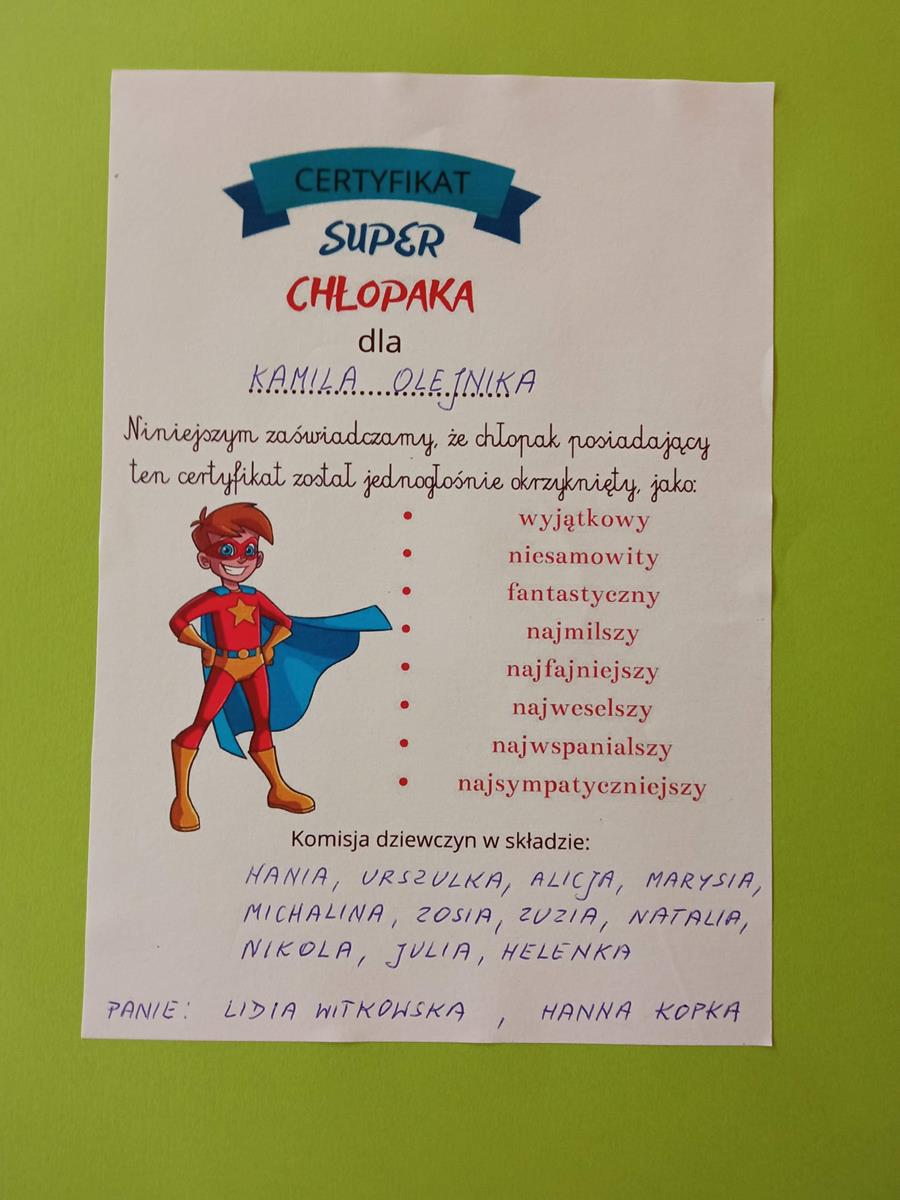 CERTYFIKAT
SUPER
CHŁOPAKA
dla
KAMILA OLEJNIKA
Niniejszym zaświadczamy, że chłopak posiadający
ten certyfikat został jednogłośnie okrzyknięty, jako:
• wyjątkowy
• niesamowity
• fantastyczny
• najmilszy
• najfajniejszy
• najweselszy
• najwspanialszy
• najsympatyczniejszy
Komisja dziewczyn w składzie:
HANIA, URSZULKA, ALICJA, MARYSIA,
MICHALINA, ZOSIA, ZUZIA, NATALIA,
NIKOLA, JULIA, HELENKA
PANIE: LIDIA WITKOWSKA , HANNA KOPKA